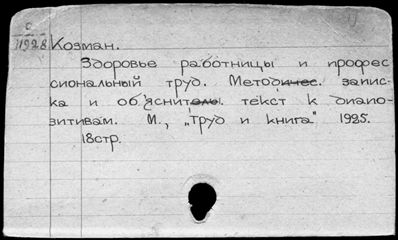 с
11928 Козман.
Здоровье работницы и профес
сиональный труд. Методичес. запис-
ка и об'яснител. текст к диапо-
зитивам. М., „Труд и книга" 1925.
18стр.